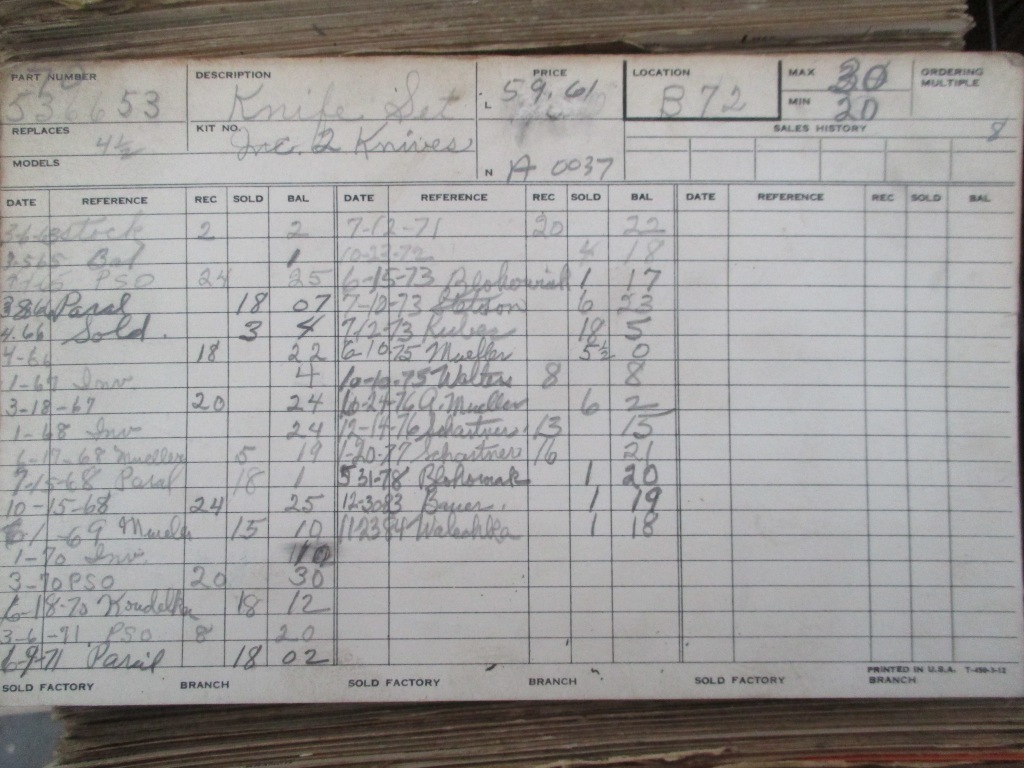 PART NUMBER DESCRIPTION PRICE LOCATION MAX 30 ORDERING MULTIPLE
70
536653 Knife Set L 59.61 B72 MIN 20
REPLACES KIT NO. SALES HISTORY
4½ Inc. 2 Knives 8
MODELS N A 0037
DATE REFERENCE REC SOLD BAL DATE REFERENCE REC SOLD BAL DATE REFERENCE REC SOLD BAL
stock 2 2 7-12-71 20 22
Bal 1 10-23-72 4 18
PSO 24 25 6-15-73 1 17
Paral 18 07 7-10-73 Stetson 6 23
4.66 Sold. 3 4 7/2-73 18 5
4-66 18 22 6-10-75 Mueller 5½ 0
1-67 Inv 4 10-10-75 Walters 8 8
3-18-67 20 24 10-24-76 A. Mueller 6 2
1-68 Inv 24 12-14-76 Schartner 13 15
6-17-68 Mueller 5 19 1-20-77 Schartner 16 21
7-15-68 Paral 18 1 5 31-78 1 20
10-15-68 24 25 12-30 83 Bauer. 1 19
-69 Mueller 15 10 11-23 84 1 18
1-70 Inv. 10
3-70 PSO 20 30
6-18-70 Koudelka 18 12
3-6-71 PSO 8 20
6-9-71 18 02
SOLD FACTORY BRANCH SOLD FACTORY BRANCH SOLD FACTORY BRANCH
PRINTED IN U.S.A. T-450-3-12